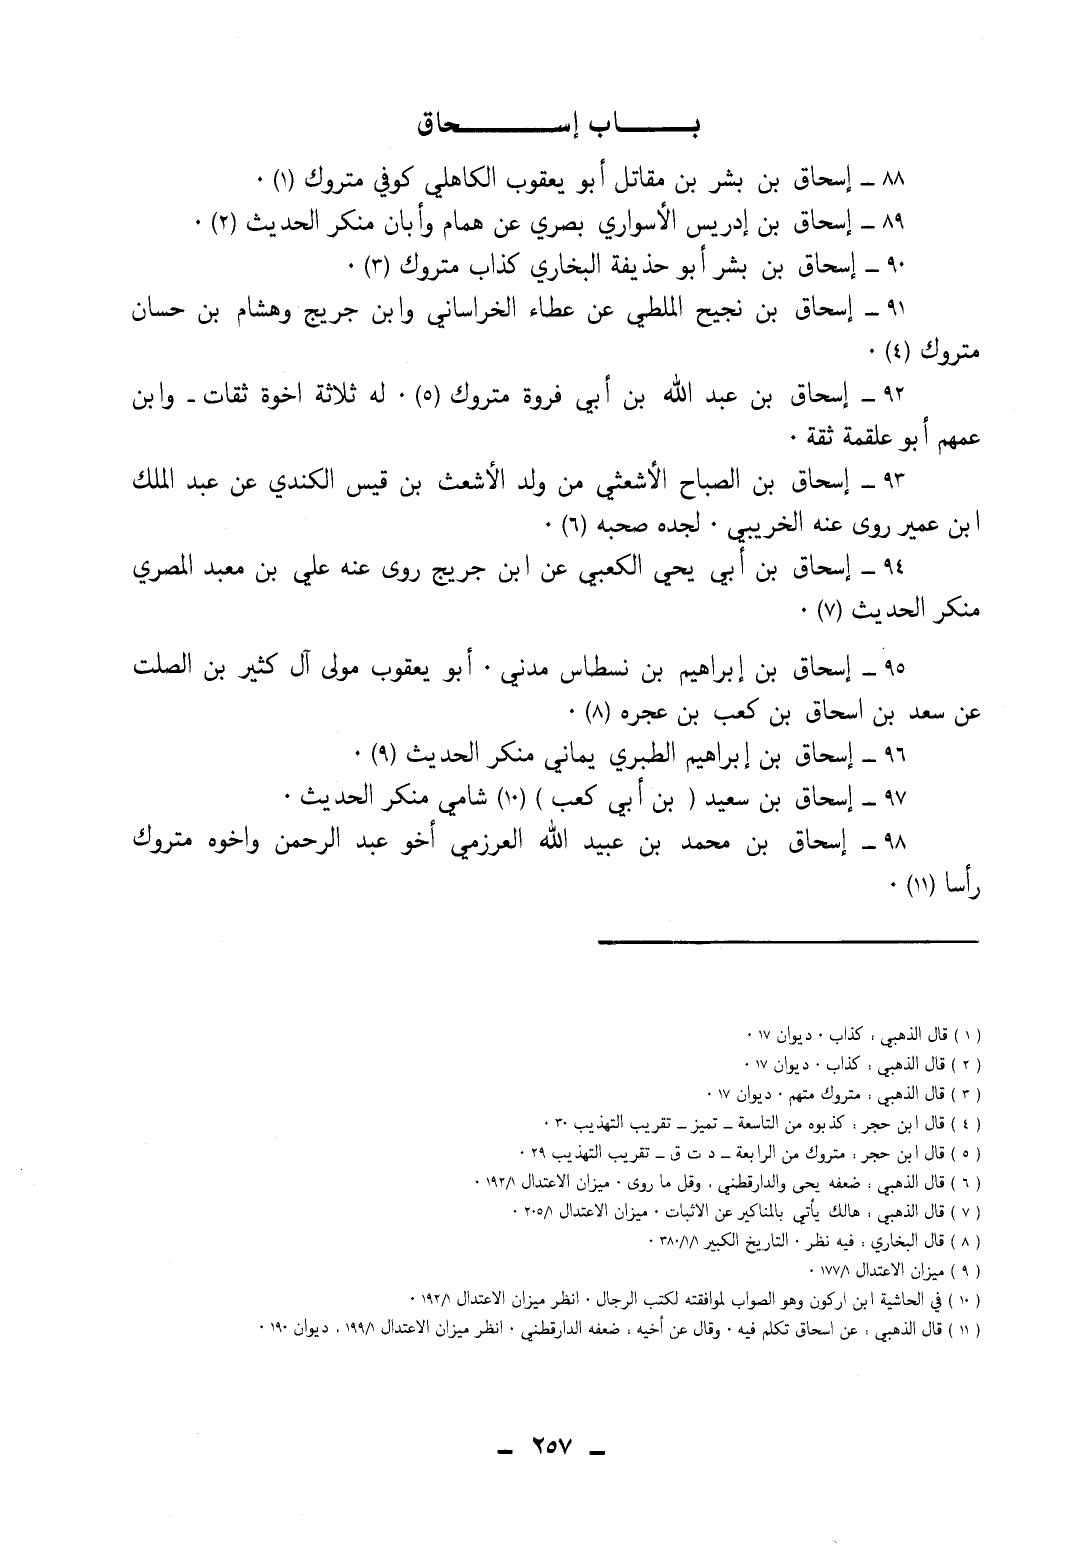 بـــــاب إســـــحاق
٨٨ ـ إسحاق بن بشر بن مقاتل أبو يعقوب الكاهلي كوفي متروك (١) ٠
٨٩ ـ إسحاق بن إدريس الأسواري بصري عن همام وأبان منكر الحديث (٢) ٠
٩٠ ـ إسحاق بن بشر أبو حذيفة البخاري كذاب متروك (٣) ٠
٩١ ـ إسحاق بن نجيح الملطي عن عطاء الخراساني وابن جريج وهشام بن حسان
متروك (٤) ٠
٩٢ ـ إسحاق بن عبد الله بن أبي فروة متروك (٥) ٠ له ثلاثة اخوة ثقات ـ وابن
عمهم أبو علقمة ثقة ٠
٩٣ ـ إسحاق بن الصباح الأشعثي من ولد الأشعث بن قيس الكندي عن عبد الملك
ابن عمير روى عنه الخريبي ٠ لجده صحبه (٦) ٠
٩٤ ـ إسحاق بن أبي يحي الكعبي عن ابن جريج روى عنه علي بن معبد المصري
منكر الحديث (٧) ٠
٩٥ ـ إسحاق بن إبراهيم بن نسطاس مدني ٠ أبو يعقوب مولى آل كثير بن الصلت
عن سعد بن اسحاق بن كعب بن عجره (٨) ٠
٩٦ ـ إسحاق بن إبراهيم الطبري يماني منكر الحديث (٩) ٠
٩٧ ـ إسحاق بن سعيد ( بن أبي كعب ) (١٠) شامي منكر الحديث ٠
٩٨ ـ إسحاق بن محمد بن عبيد الله العرزمي أخو عبد الرحمن واخوه متروك
رأسا (١١) ٠
( ١ ) قال الذهبي : كذاب ٠ ديوان ١٧ ٠
( ٢ ) قال الذهبي : كذاب ٠ ديوان ١٧ ٠
( ٣ ) قال الذهبي : متروك متهم ٠ ديوان ١٧ ٠
( ٤ ) قال ابن حجر : كذبوه من التاسعة ـ تميز ـ تقريب التهذيب ٣٠ ٠
( ٥ ) قال ابن حجر : متروك من الرابعة ـ د ت ق ـ تقريب التهذيب ٢٩ ٠
( ٦ ) قال الذهبي : ضعفه يحى والدارقطني ، وقل ما روى ٠ ميزان الاعتدال ١٩٢/١ ٠
( ٧ ) قال الذهبي : هالك يأتي بالمناكير عن الاثبات ٠ ميزان الاعتدال ٢٠٥/١ ٠
( ٨ ) قال البخاري : فيه نظر ٠ التاريخ الكبير ٣٨٠/١/١ ٠
( ٩ ) ميزان الاعتدال ١٧٧/١ ٠
( ١٠ ) في الحاشية ابن اركون وهو الصواب لموافقته لكتب الرجال ٠ انظر ميزان الاعتدال ١٩٢/١ ٠
( ١١ ) قال الذهبي : عن اسحاق تكلم فيه ٠ وقال عن أخيه : ضعفه الدارقطني ٠ انظر ميزان الاعتدال ١٩٩/١ ، ديوان ١٩٠ ٠
ـ ٢٥٧ ـ